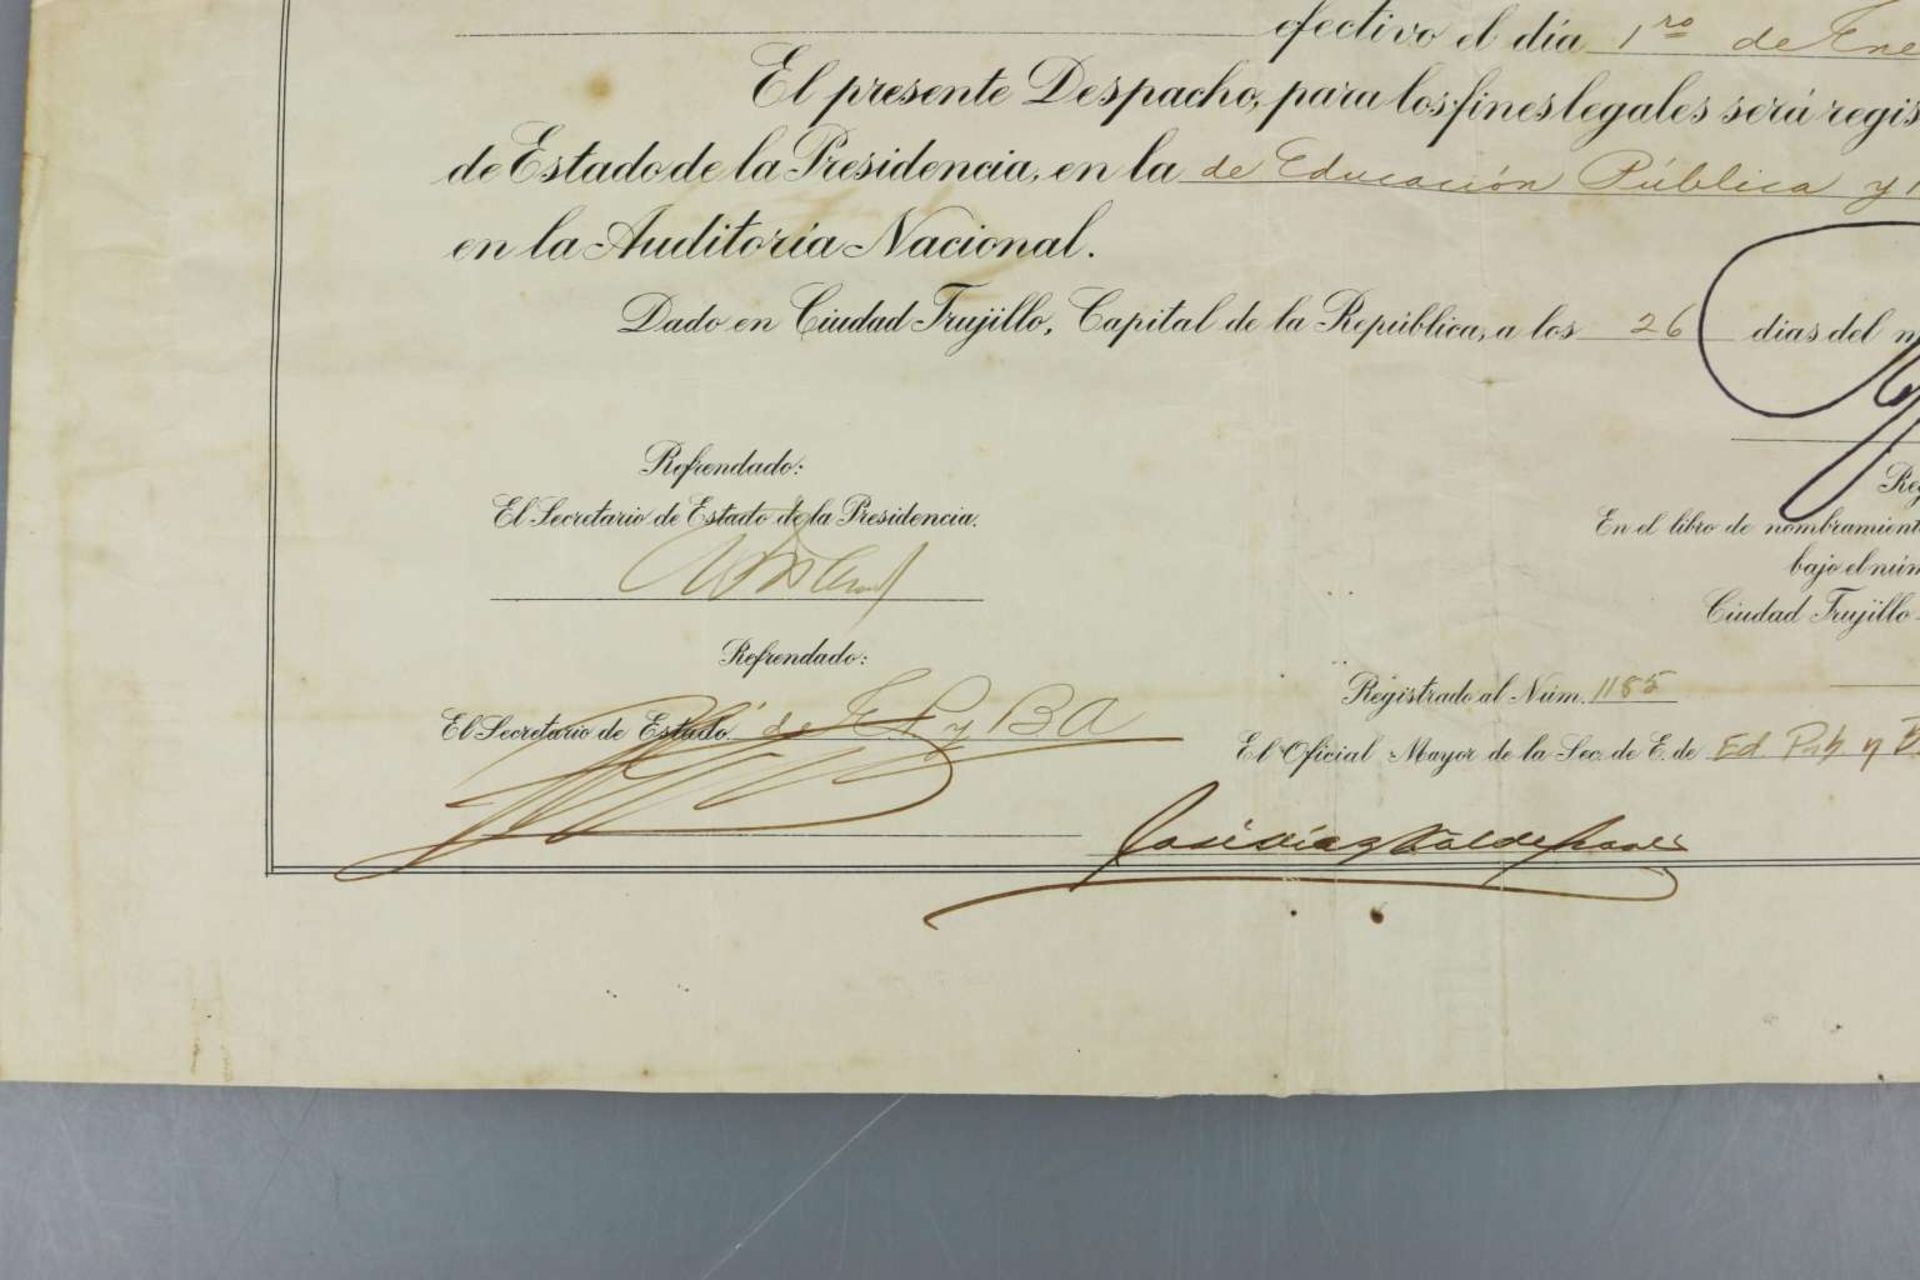 efectivo el día 1ro de Ene
El presente Despacho, para los fines legales será regis
de Estado de la Presidencia, en la de Educación Pública y
en la Auditoría Nacional.
Dado en Ciudad Trujillo, Capital de la República, a los 26 dias del m
Refrendado:
El Secretario de Estado de la Presidencia.
Reg
En el libro de nombramient
bajo el núm
Ciudad Trujillo
Refrendado:
El Secretario de Estado de E P y B A
Registrado al Núm. 1185
El Oficial Mayor de la Sec. de E. de Ed. Pub y B